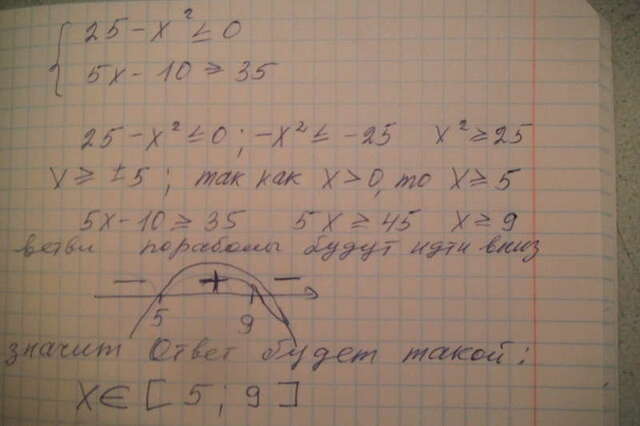 25 - x² ≤ 0
5x - 10 ≥ 35
25 - x² ≤ 0 ; -x² ≤ -25 x² ≥ 25
x ≥ ±5 ; так как x > 0, то x ≥ 5
5x - 10 ≥ 35 5x ≥ 45 x ≥ 9
ветви пораболы будут идти вниз
— + —
5 9
значит Ответ будет такой:
X ∈ [ 5 ; 9 ]